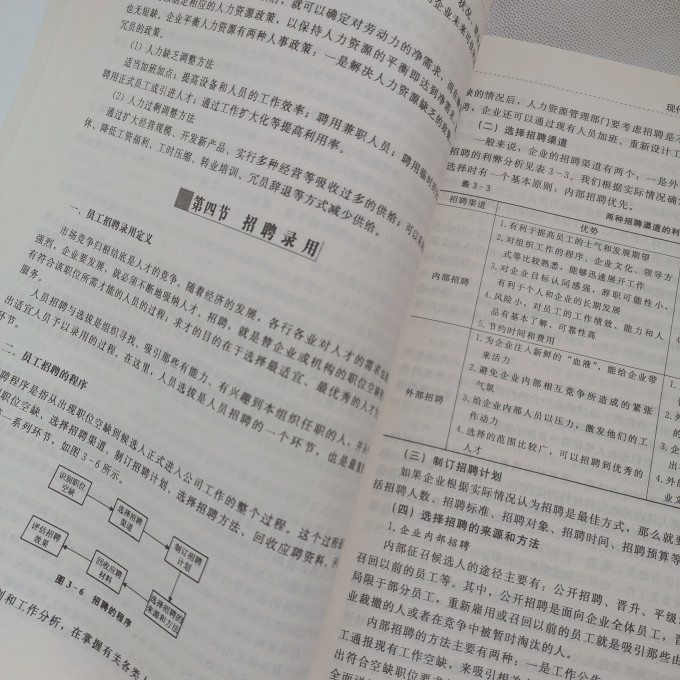 定相应的人力资源政策,以保持人力资源的平衡即达到净需求
也无短缺。企业平衡人力资源有两种人事政策:一是解决人力资源缺乏的政策
冗员的政策。
(1)人力缺乏调整方法
适当加班加点;提高设备和人员的工作效率;聘用兼职人员;聘用临时
聘用正式员工或引进人才;通过工作扩大化等提高利用率。
(2)人力过剩调整方法
通过扩大经营规模、开发新产品、实行多种经营等吸收过多的供给;可以
休、降低工资福利、工时压缩、转业培训、冗员辞退等方式减少供给。
第四节 招聘录用
一、员工招聘录用定义
市场竞争归根结底是人才的竞争。随着经济的发展,各行各业对人才的需求
强烈,企业要发展,就必须不断地吸纳人才。招聘,就是替企业或机构的职位空缺
有符合该职位所需才能的人员的过程;求才的目的在于选择最适宜、最优秀的人才
服务。
人员招聘与选拔是组织寻找、吸引那些有能力、有兴趣到本组织任职的人,并
出适宜人员予以录用的过程。在这里,人员选拔是人员招聘的一个环节,也是最重
环节。
二、员工招聘的程序
聘程序是指从出现职位空缺到候选人正式进入公司工作的整个过程。这个过程
职位空缺、选择招聘渠道、制订招聘计划、选择招聘方法、回收应聘资料、评
一系列环节,如图 3-6 所示。
识别职位
空缺
选择招聘
渠道
制订招聘
计划
评估招聘
效果
回收应聘
材料
选择招聘的
来源和方法
图 3-6 招聘的程序
和工作分析,在掌握有关各类人
现代
缺的情况后,人力资源管理部门要考虑招聘是
企业还可以通过现有人员加班、重新设计工
(二)选择招聘渠道
一般来说,企业的招聘渠道有两个:一是外
招聘的利弊分析见表 3-3。我们根据实际情况确
选择时有一个基本原则:内部招聘优先。
表 3-3
两种招聘渠道的利
招聘渠道
优势
内部招聘
1. 有利于提高员工的士气和发展期望
2. 对组织工作的程序、企业文化、领导方
式等比较熟悉,能够迅速展开工作
3. 对企业目标认同感强,辞职可能性小,
有利于个人和企业的长期发展
4. 风险小,对员工的工作绩效、能力和人
品有基本了解,可靠性高
5. 节约时间和费用
外部招聘
1. 为企业注入新鲜的“血液”,能给企业带
来活力
2. 避免企业内部相互竞争所造成的紧张
气氛
3. 给企业内部人员以压力,激发他们的工
作动力
4. 选择的范围比较广,可以招聘到优秀的
人才
(三)制订招聘计划
如果企业根据实际情况认为招聘是最佳方式,那么就要
括招聘人数、招聘标准、招聘对象、招聘时间、招聘预算等
(四)选择招聘的来源和方法
1. 企业内部招聘
内部征召候选人的途径主要有:公开招聘、晋升、平级
召回以前的员工等。其中,公开招聘是面向企业全体员工,晋
局限于部分员工,重新雇用或召回以前的员工就是吸引那些由
业裁撤的人或者在竞争中被暂时淘汰的人。
内部招聘的方法主要有两种:一是工作公告
工通报现有工作空缺,来吸引相关
出符合空缺职位要求